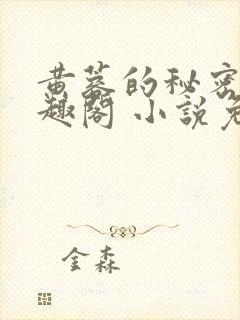 黄蓉的秘密
趣阁 小说免
金森